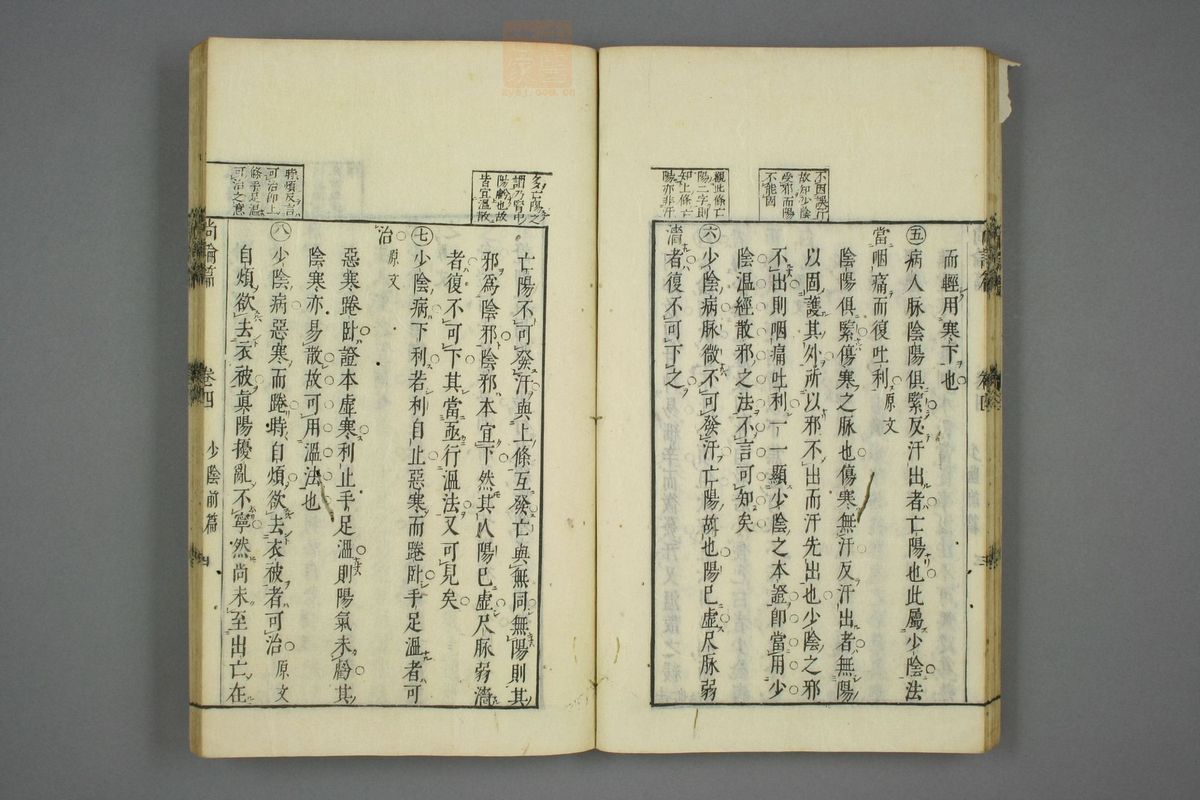 而輕用寒下也
㊄病人脉陰陽俱緊反汗出者亡陽也此屬少陰法
當咽痛而復吐利原文
陰陽俱緊傷寒之脉也傷寒無汗反汗出者無陽
以固護其外所以邪不出而汗先出也少陰之邪
不出則咽痛吐利一一顯少陰之本證卽當用少
陰溫經散邪之法不言可知矣
㊅少陰病脉微不可發汗亡陽故也陽巳虛尺脉弱
濇者復不可下之
不能固
觀此條亡
陽二字則
知上條亡
陽亦非汗
亡陽不可發汗與上條互發亡與無同無陽則其
邪爲陰邪陰邪本宜下然其人陽巳虛尺脉弱濇
者復不可下其當亟行溫法又可見矣
㊆少陰病下利若利自止惡寒而踡臥手足溫者可
治原文
惡寒踡臥證本虛寒利止手足溫則陽氣未虧其
陰寒亦易散故可用溫法也
㊇少陰病惡寒而踡時自煩欲去衣被者可治原文
自煩欲去衣被眞陽擾亂不寧然尚未至出亡在
皆宜溫散
時煩反言
可治卽上
條手足溫
可治之意
尚論篇
卷四
少陰前篇
四